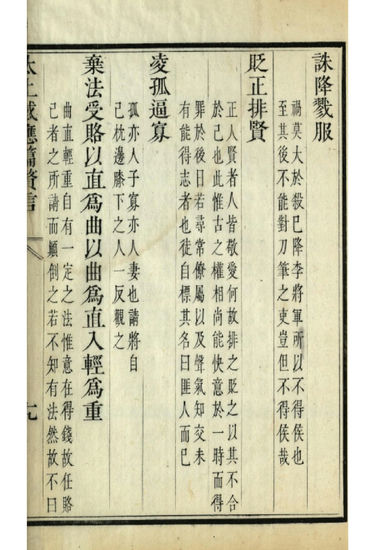 誅降戮服
禍莫大於殺已降李將軍所以不得侯也
至其後不能對刀筆之吏豈但不得侯哉
貶正排賢
正人賢者人皆敬愛何故排之貶之以其不合
於己也此惟古之權相尚能快意於一時而得
罪於後日若尋常僚屬以及聲氣知交未
有能得志者也徒自標其名曰匪人而已
凌孤逼寡
孤亦人子寡亦人妻也請將自
己枕邊膝下之人一反觀之
棄法受賂以直爲曲以曲爲直入輕爲重
曲直輕重自有一定之法惟意在得錢故任賂
己者之所請而顚倒之若不知有法然故不曰
太上感應篇贅言
九